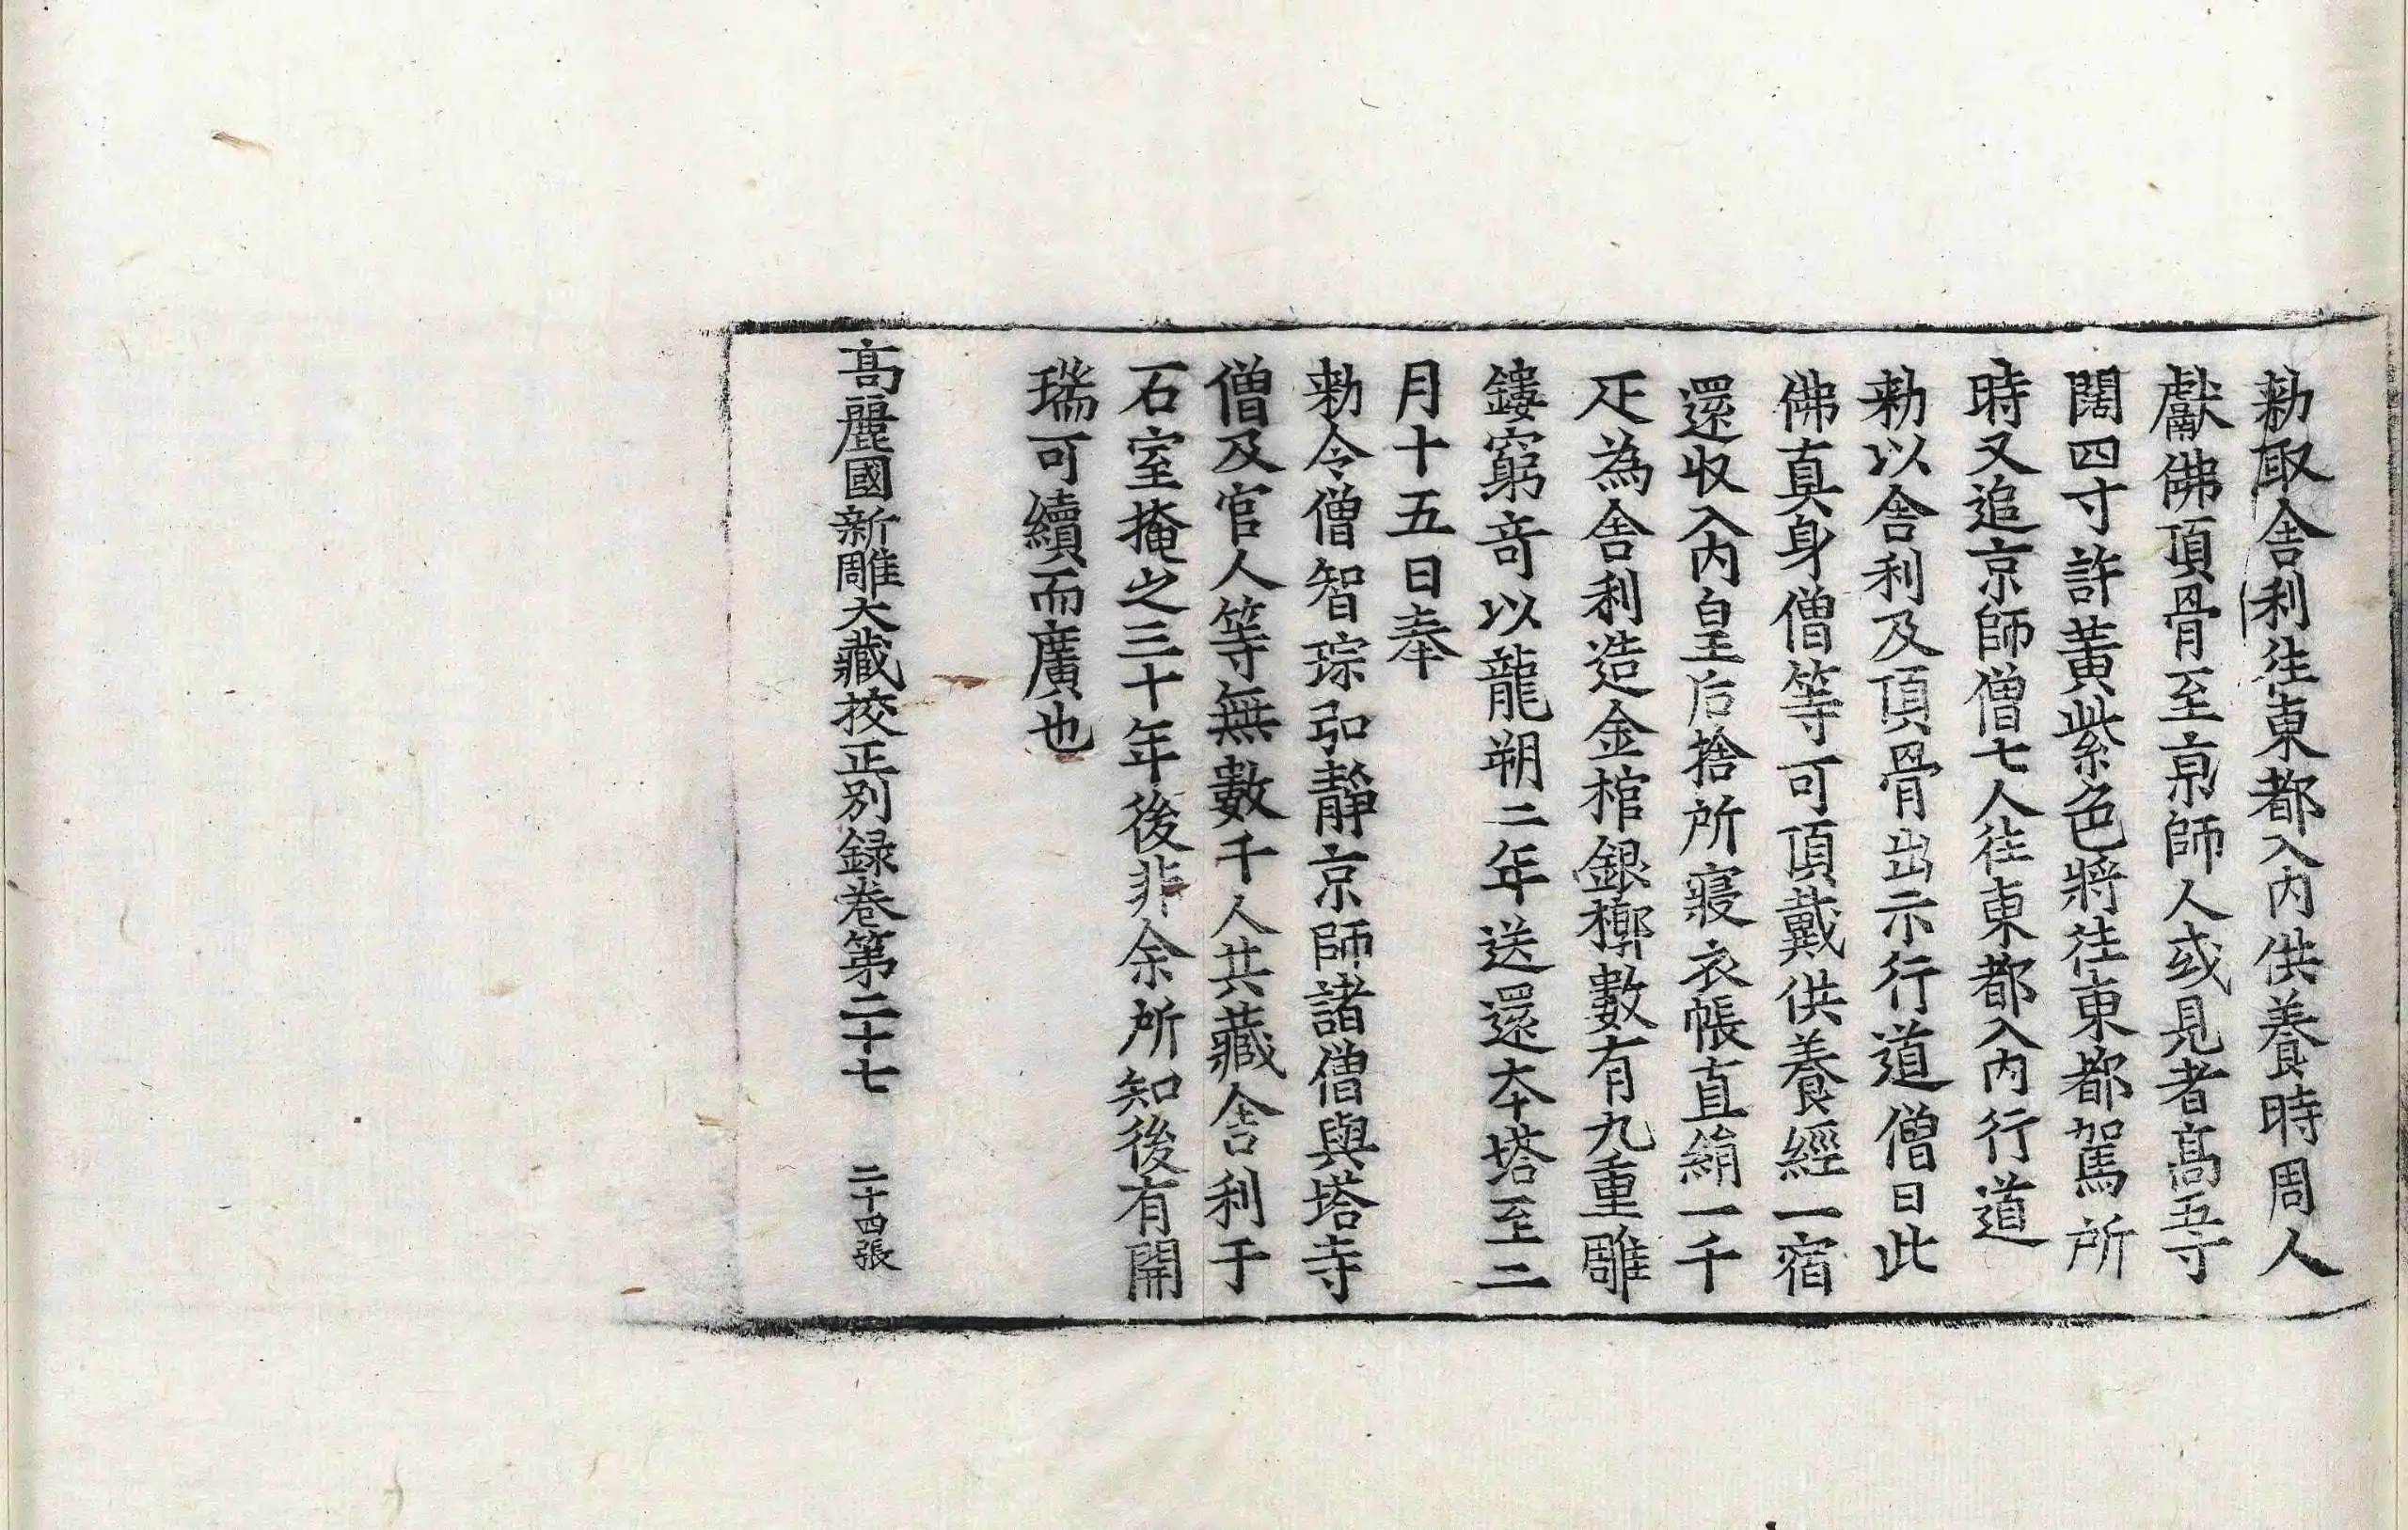 勑取舎利往東都入内供養時周人
獻佛頂骨至京師人或見者髙五寸
闊四寸許黃紫色將往東都駕所
時又追京師僧七人往東都入内行道
勑以舎利及頂骨出示行道僧曰此
佛真身僧等可頂戴供養經一宿
還収入内皇后捨所寢衣帳直絹一千
疋為舎利造金棺銀槨數有九重雕
鏤窮竒以龍朔二年送還夲塔至二
月十五日奉
勑令僧智琮弘靜京師諸僧與塔寺
僧及官人等無數千人共藏舎利于
石室掩之三十年後非余所知後有開
瑞可續而廣也
髙麗國新雕大藏挍正别録卷第二十七 二十四張